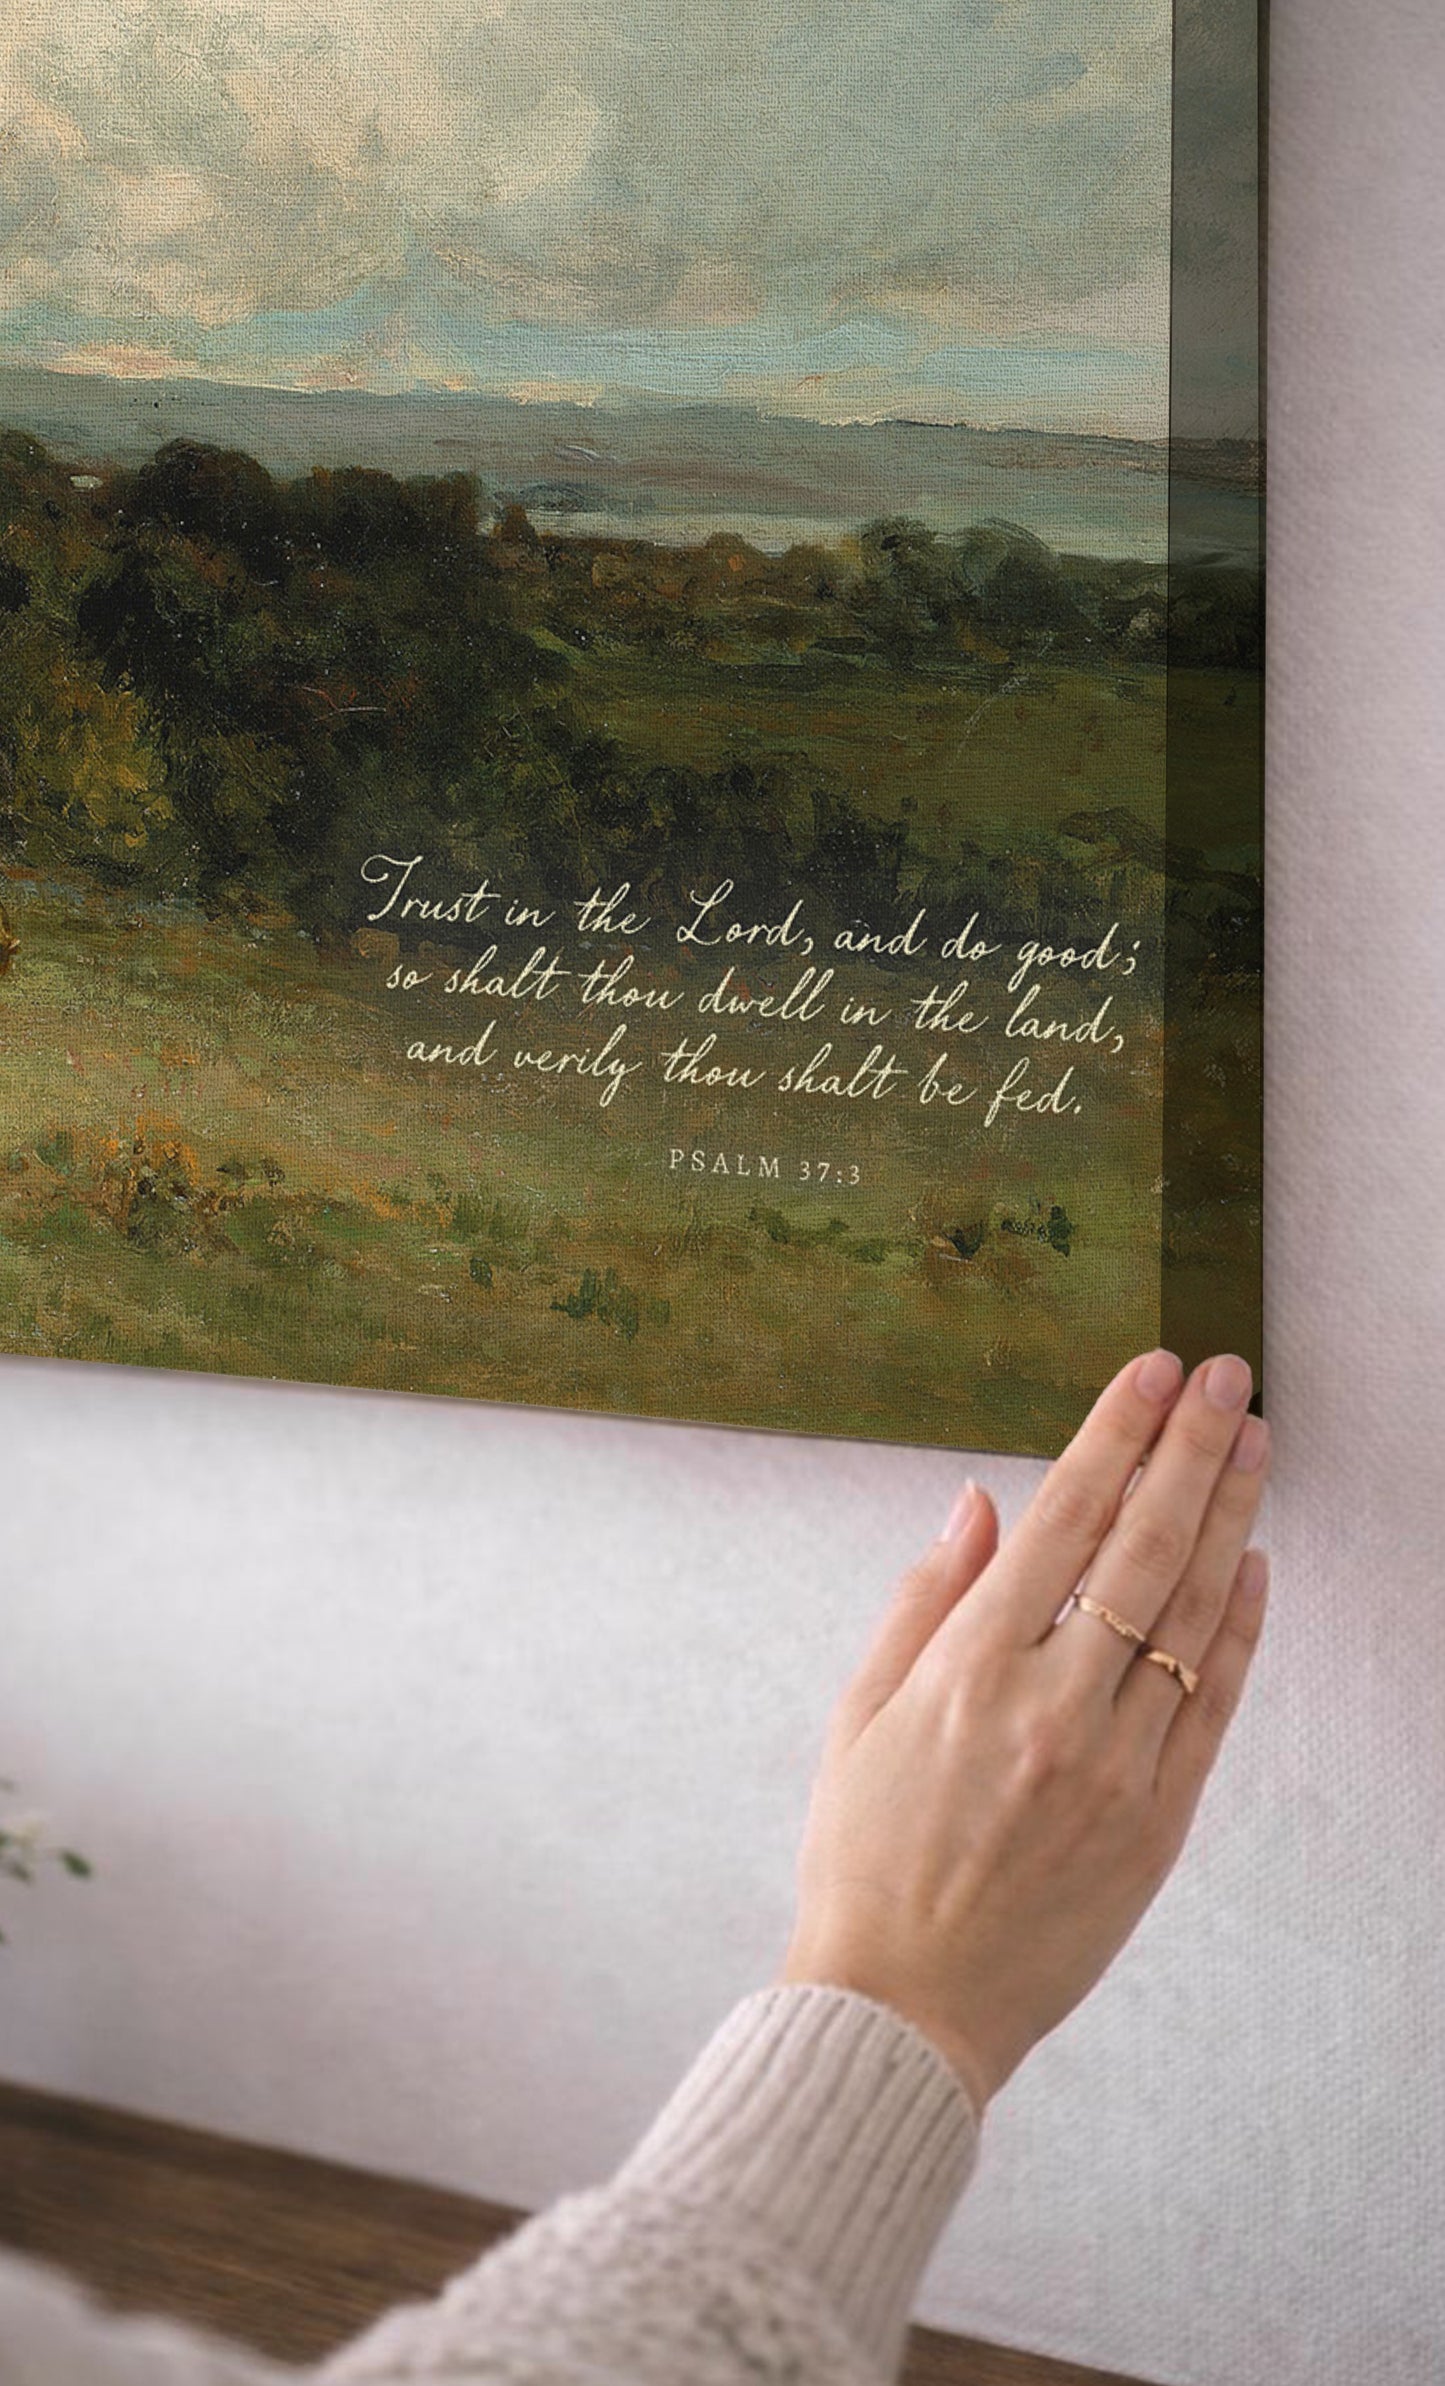 Trust in the Lord, and do good;
so shalt thou dwell in the land,
and verily thou shalt be fed.
PSALM 37:3